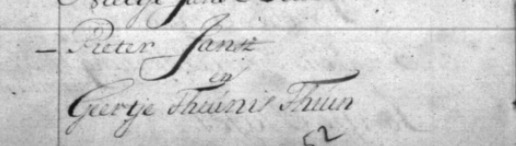 – Pieter Jansz
en
Geertje Theunis Thuin
52